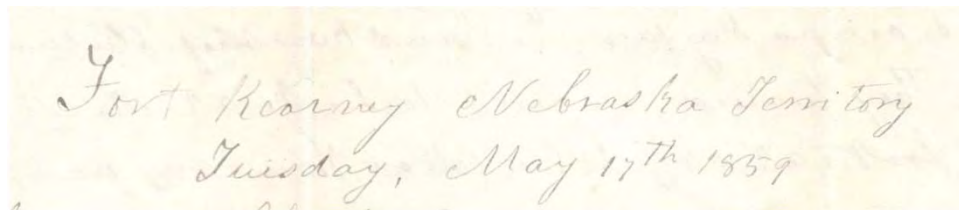 Fort Kearney Nebraska Territory
Tuesday, May 17th 1859